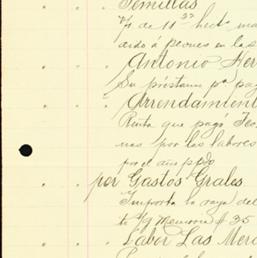 Semillas
de 11 hect
ardo á peones en las
Antonio Her
Su préstamo pª pag
Arrendamient
Renta que pagó Teo
por las labores
por el año ppdo
por Gastos Grales
Importa la raya del
Memoria #35
Labor Las Merc